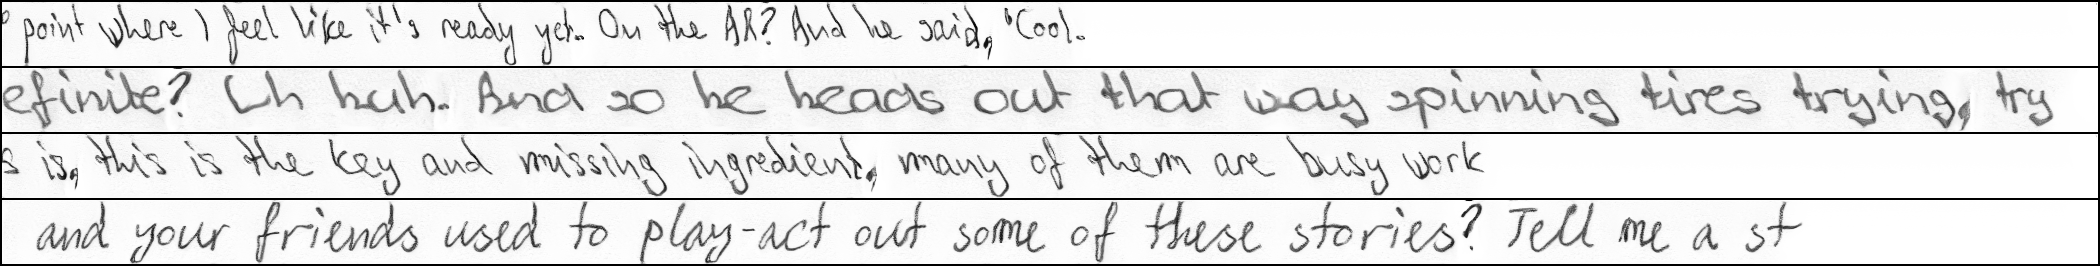 point where I feel like it's ready yet. On the AR? And he said, "Cool.
efinite? Uh huh. And so he heads out that way spinning tires trying, try
s is, this is the key and missing ingredient, many of them are busy work
and your friends used to play-act out some of these stories? Tell me a st